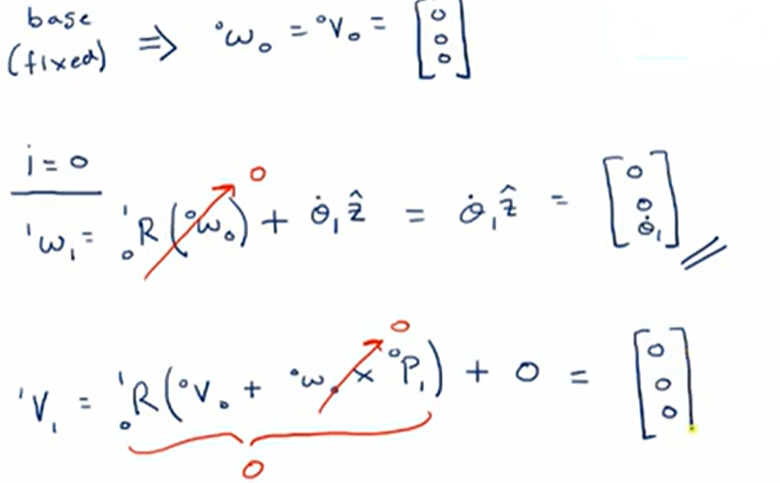 base
(fixed) ⇒ ⁰ω₀ = ⁰V₀ = [0 0 0]
i = 0
¹ω₁ = ¹₀R(⁰ω₀) + θ̇₁ẑ = θ̇₁ẑ = [0 0 θ̇₁]
0
¹V₁ = ¹₀R(⁰V₀ + ⁰ω₀ × ⁰P₁) + 0 = [0 0 0]
0
0